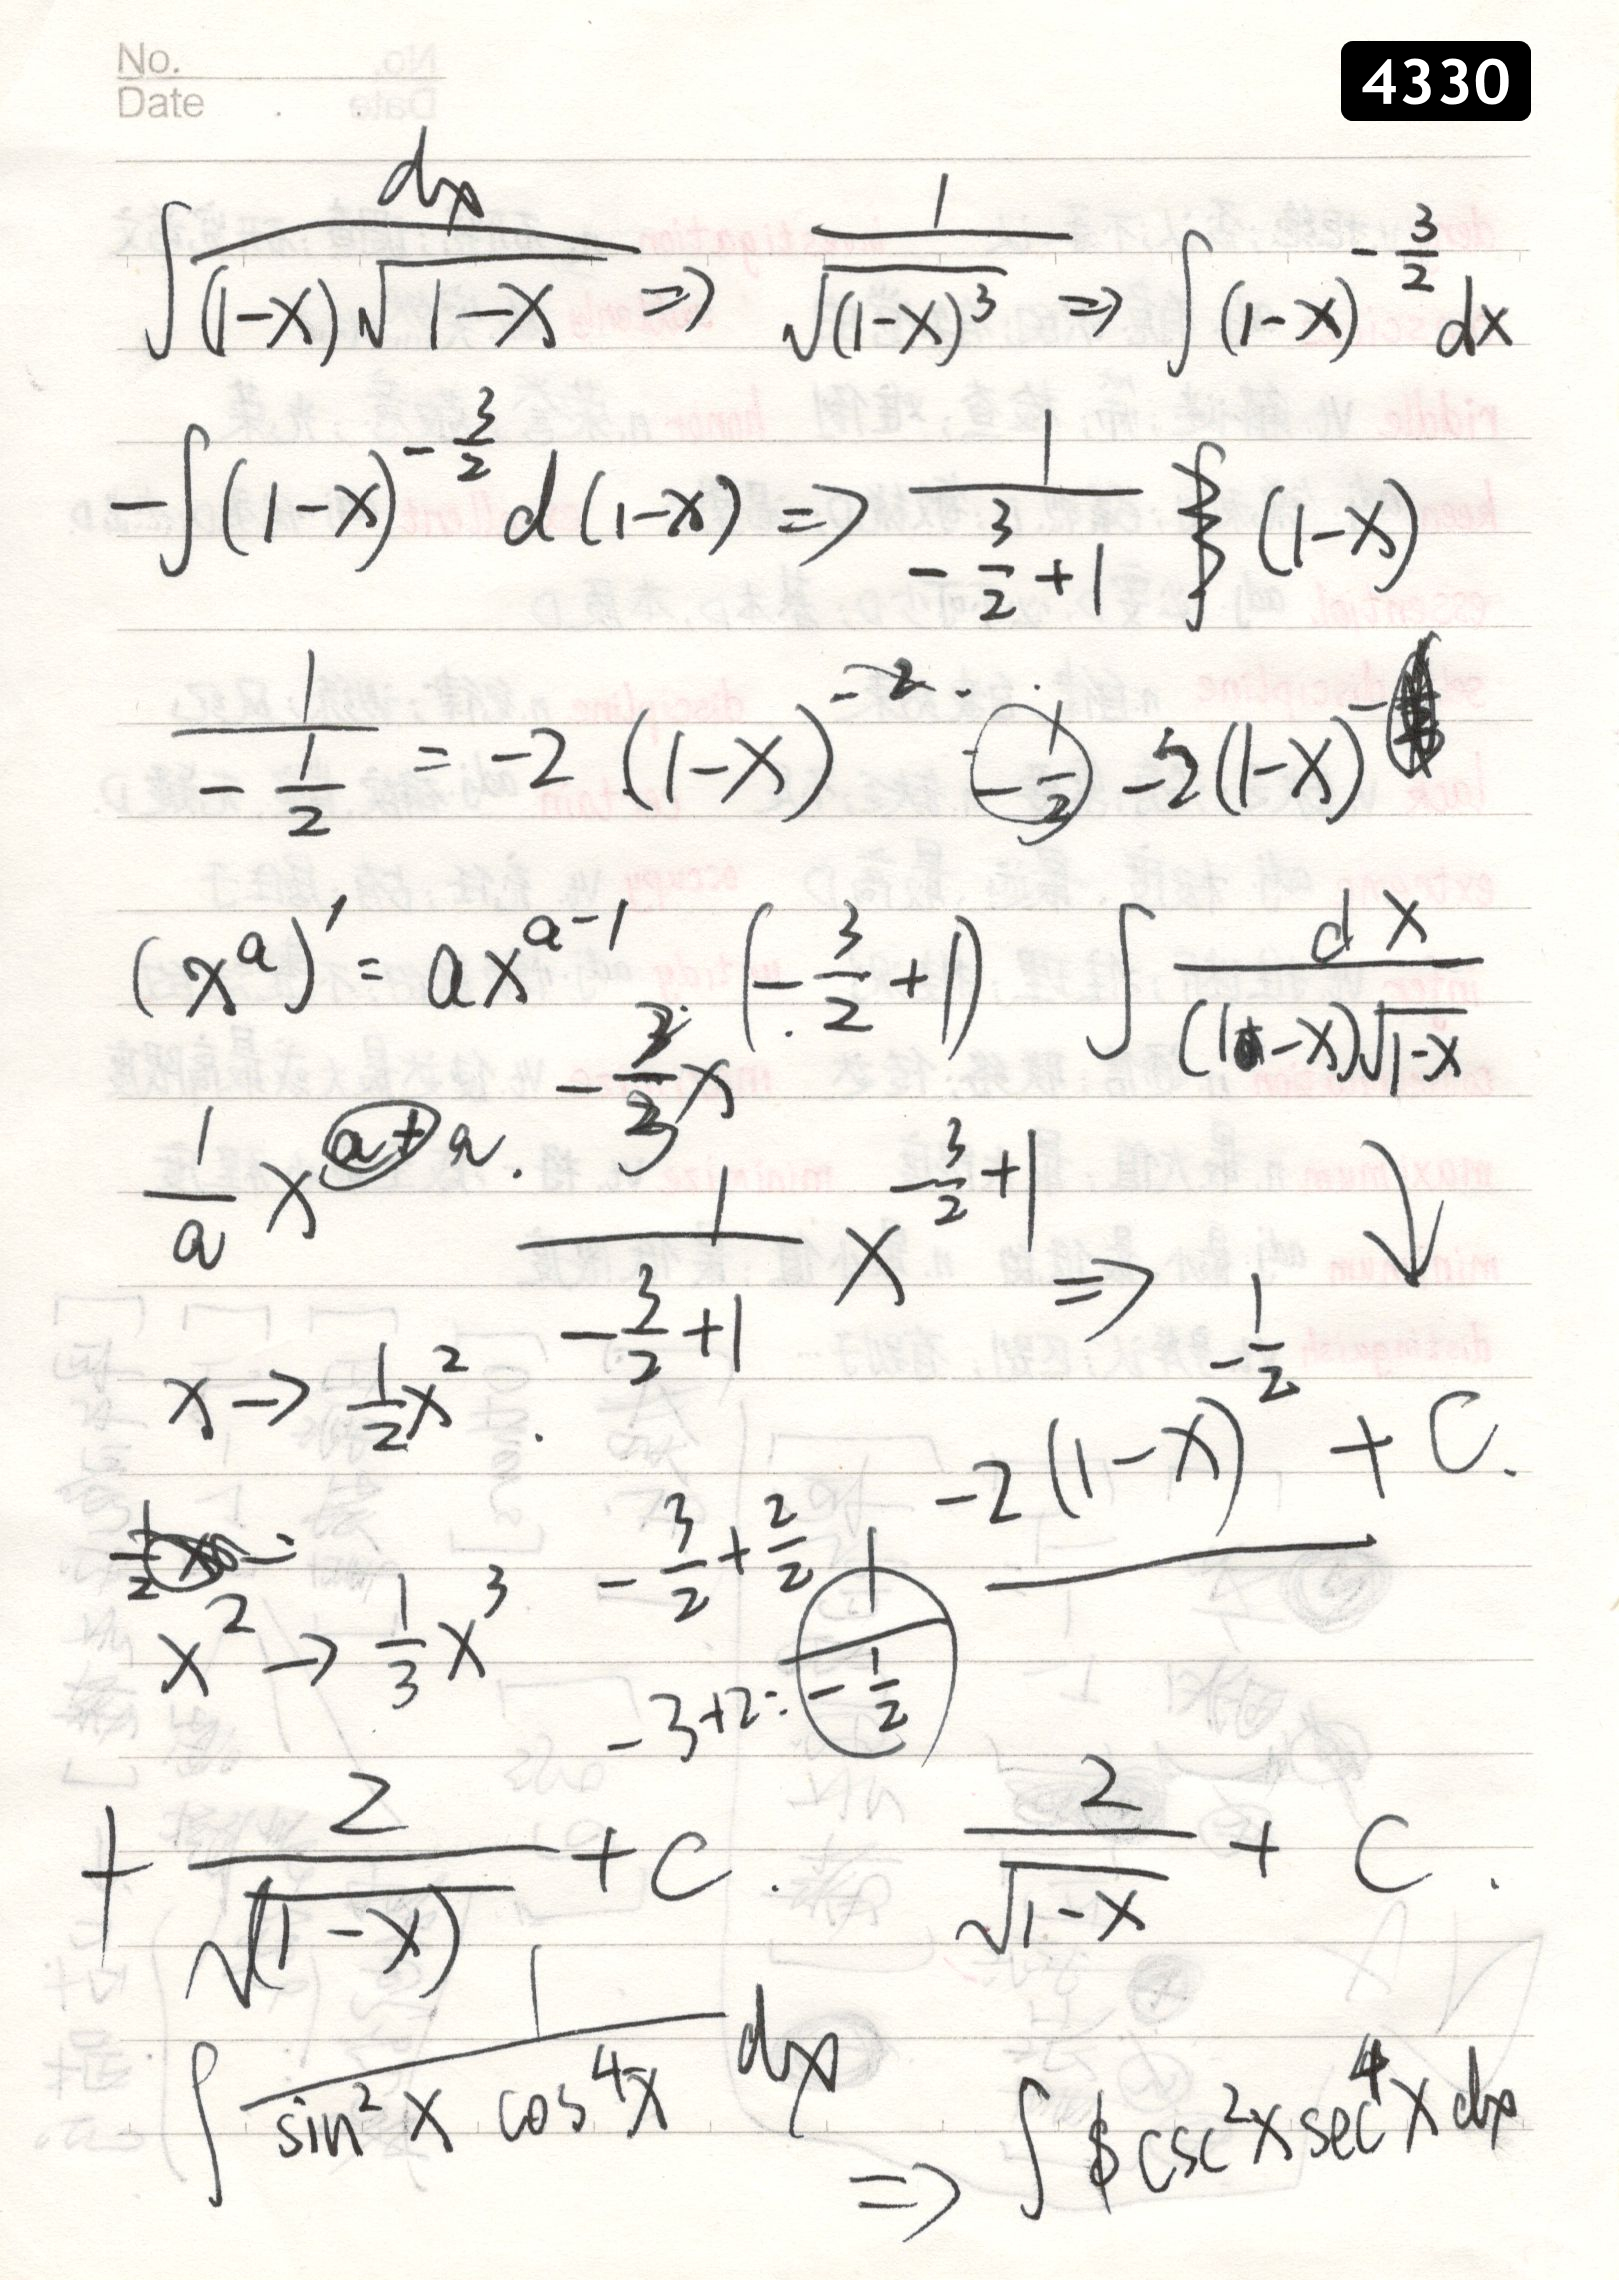 No.
Date
4330
∫ dx / ((1-x)√(1-x)) => 1/√((1-x)³) => ∫(1-x)^(-3/2) dx
-∫(1-x)^(-3/2) d(1-x) => 1/(-3/2+1) (1-x)
1/(-1/2) = -2 (1-x)^(-2) · -1/2 -2(1-x)^-
(x^a)' = ax^(a-1) (-3/2+1) ∫ dx / ((1-x)√(1-x))
1/a x^a . 1/(-3/2+1) x^(-3/2+1) =>
x -> 1/2 x² . -2(1-x)^(-1/2) + C.
x² -> 1/3 x³ -3/2+2/2 1/(-1/2)
-3+2:
+ 2/√(1-x) + C . 2/√(1-x) + C .
∫ 1/(sin²x cos⁴x) dx => ∫ csc²x sec⁴x dx